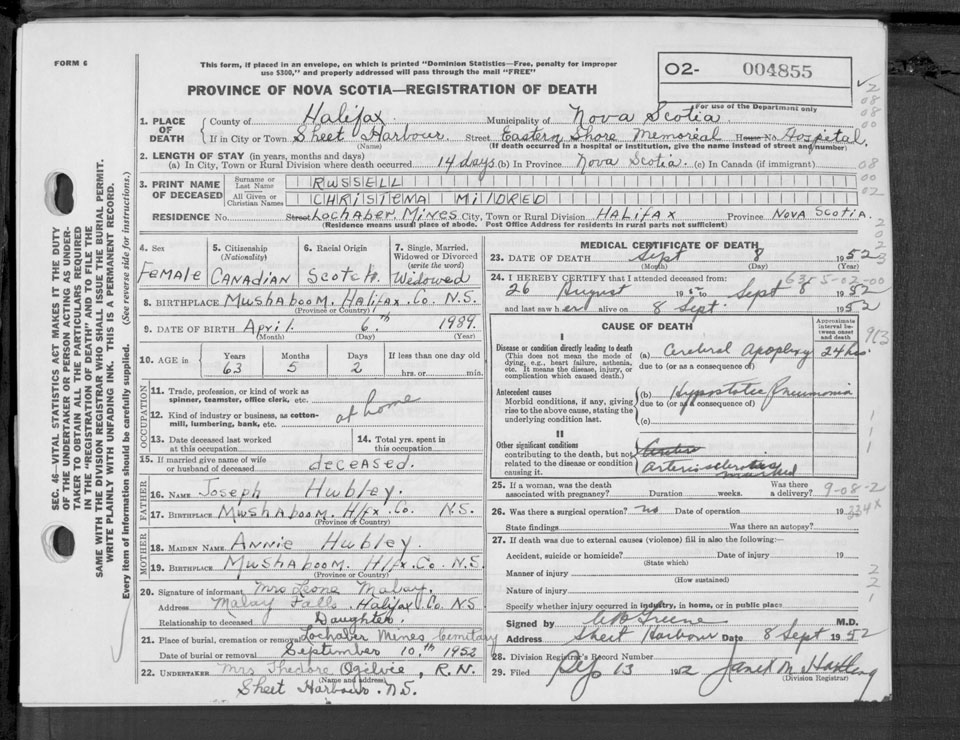 FORM 6
This form, if placed in an envelope, on which is printed "Dominion Statistics—Free, penalty for improper
use $300," and properly addressed will pass through the mail "FREE"
PROVINCE OF NOVA SCOTIA—REGISTRATION OF DEATH
02- 004855
For use of the Department only
1. PLACE OF DEATH
County of Halifax Municipality of Nova Scotia
If in City or Town Sheet Harbour. Street Eastern Shore Memorial House No. Hospital.
(Name) (If death occurred in a hospital or institution, give the name instead of street and number)
2. LENGTH OF STAY (in years, months and days)
(a) In City, Town or Rural District where death occurred. 14 days. (b) In Province Nova Scotia. (c) In Canada (if immigrant)
3. PRINT NAME OF DECEASED
Surname or Last Name RUSSELL
All Given or Christian Names CHRISTENA MILDRED
RESIDENCE No. Street Lochaber Mines City, Town or Rural Division HALIFAX Province Nova Scotia.
(Residence means usual place of abode. Post Office Address for residents in rural parts not sufficient)
4. Sex Female
5. Citizenship (Nationality) CANADIAN
6. Racial Origin Scotch.
7. Single, Married, Widowed or Divorced (write the word) Widowed
8. BIRTHPLACE Mushaboom. Halifax. Co. N.S.
(Province or Country)
9. DATE OF BIRTH April. 6.th 1989.
(Month) (Day) (Year)
10. AGE in Years 63 Months 5 Days 2 If less than one day old hrs. or min.
OCCUPATION
11. Trade, profession, or kind of work as spinner, teamster, office clerk, etc.
12. Kind of industry or business, as cotton-mill, lumbering, bank, etc. at home
13. Date deceased last worked at this occupation
14. Total yrs. spent in this occupation
15. If married give name of wife or husband of deceased deceased.
FATHER
16. NAME Joseph Hubley.
17. BIRTHPLACE Mushaboom. Hfx. Co. N.S.
(Province or Country)
MOTHER
18. MAIDEN NAME Annie Hubley
19. BIRTHPLACE Mushaboom. Hfx. Co. N.S.
(Province or Country)
20. Signature of informant Mrs Leone Malay.
Address Malay Falls. Halifax. Co. NS
Relationship to deceased Daughter.
21. Place of burial, cremation or removal Lochaber Mines Cemitary
Date of burial or removal September 10.th 1952
22. UNDERTAKER Mrs Thedore Ogilvie, R.N.
(Name and address)
Sheet Harbour. N.S.
MEDICAL CERTIFICATE OF DEATH
23. DATE OF DEATH Sept 8 1952
(Month) (Day) (Year)
24. I HEREBY CERTIFY that I attended deceased from:
26 August 1952 to Sept 8 1952
and last saw her alive on 8 Sept 1952
CAUSE OF DEATH
Approximate interval between onset and death
I
Disease or condition directly leading to death
(This does not mean the mode of dying, e.g., heart failure, asthenia, etc. It means the disease, injury, or complication which caused death.)
(a) Cerebral Apoplexy 24 hrs
due to (or as a consequence of)
Antecedent causes
Morbid conditions, if any, giving rise to the above cause, stating the underlying condition last.
(b) Hypostatic Pneumonia
due to (or as a consequence of)
(c)
II
Other significant conditions
contributing to the death, but not related to the disease or condition causing it.
Arteriosclerosis
marked
25. If a woman, was the death associated with pregnancy? Duration weeks. Was there a delivery?
26. Was there a surgical operation? no Date of operation 19
State findings Was there an autopsy?
27. If death was due to external causes (violence) fill in also the following:—
Accident, suicide or homicide? Date of injury 19
(State which)
Manner of injury
(How sustained)
Nature of injury
Specify whether injury occurred in industry, in home, or in public place
Signed by M.D.
Address Sheet Harbour Date 8 Sept 1952
28. Division Registrar's Record Number
29. Filed Sep 13 1952
(Division Registrar)
SEC. 46—VITAL STATISTICS ACT MAKES IT THE DUTY
OF THE UNDERTAKER OR PERSON ACTING AS UNDER-
TAKER TO OBTAIN ALL THE PARTICULARS REQUIRED
IN THE "REGISTRATION OF DEATH" AND TO FILE THE
SAME WITH THE DIVISION REGISTRAR WHO SHALL ISSUE THE BURIAL PERMIT.
WRITE PLAINLY WITH UNFADING INK. THIS IS A PERMANENT RECORD.
Every item of information should be carefully supplied. (See reverse side for instructions.)